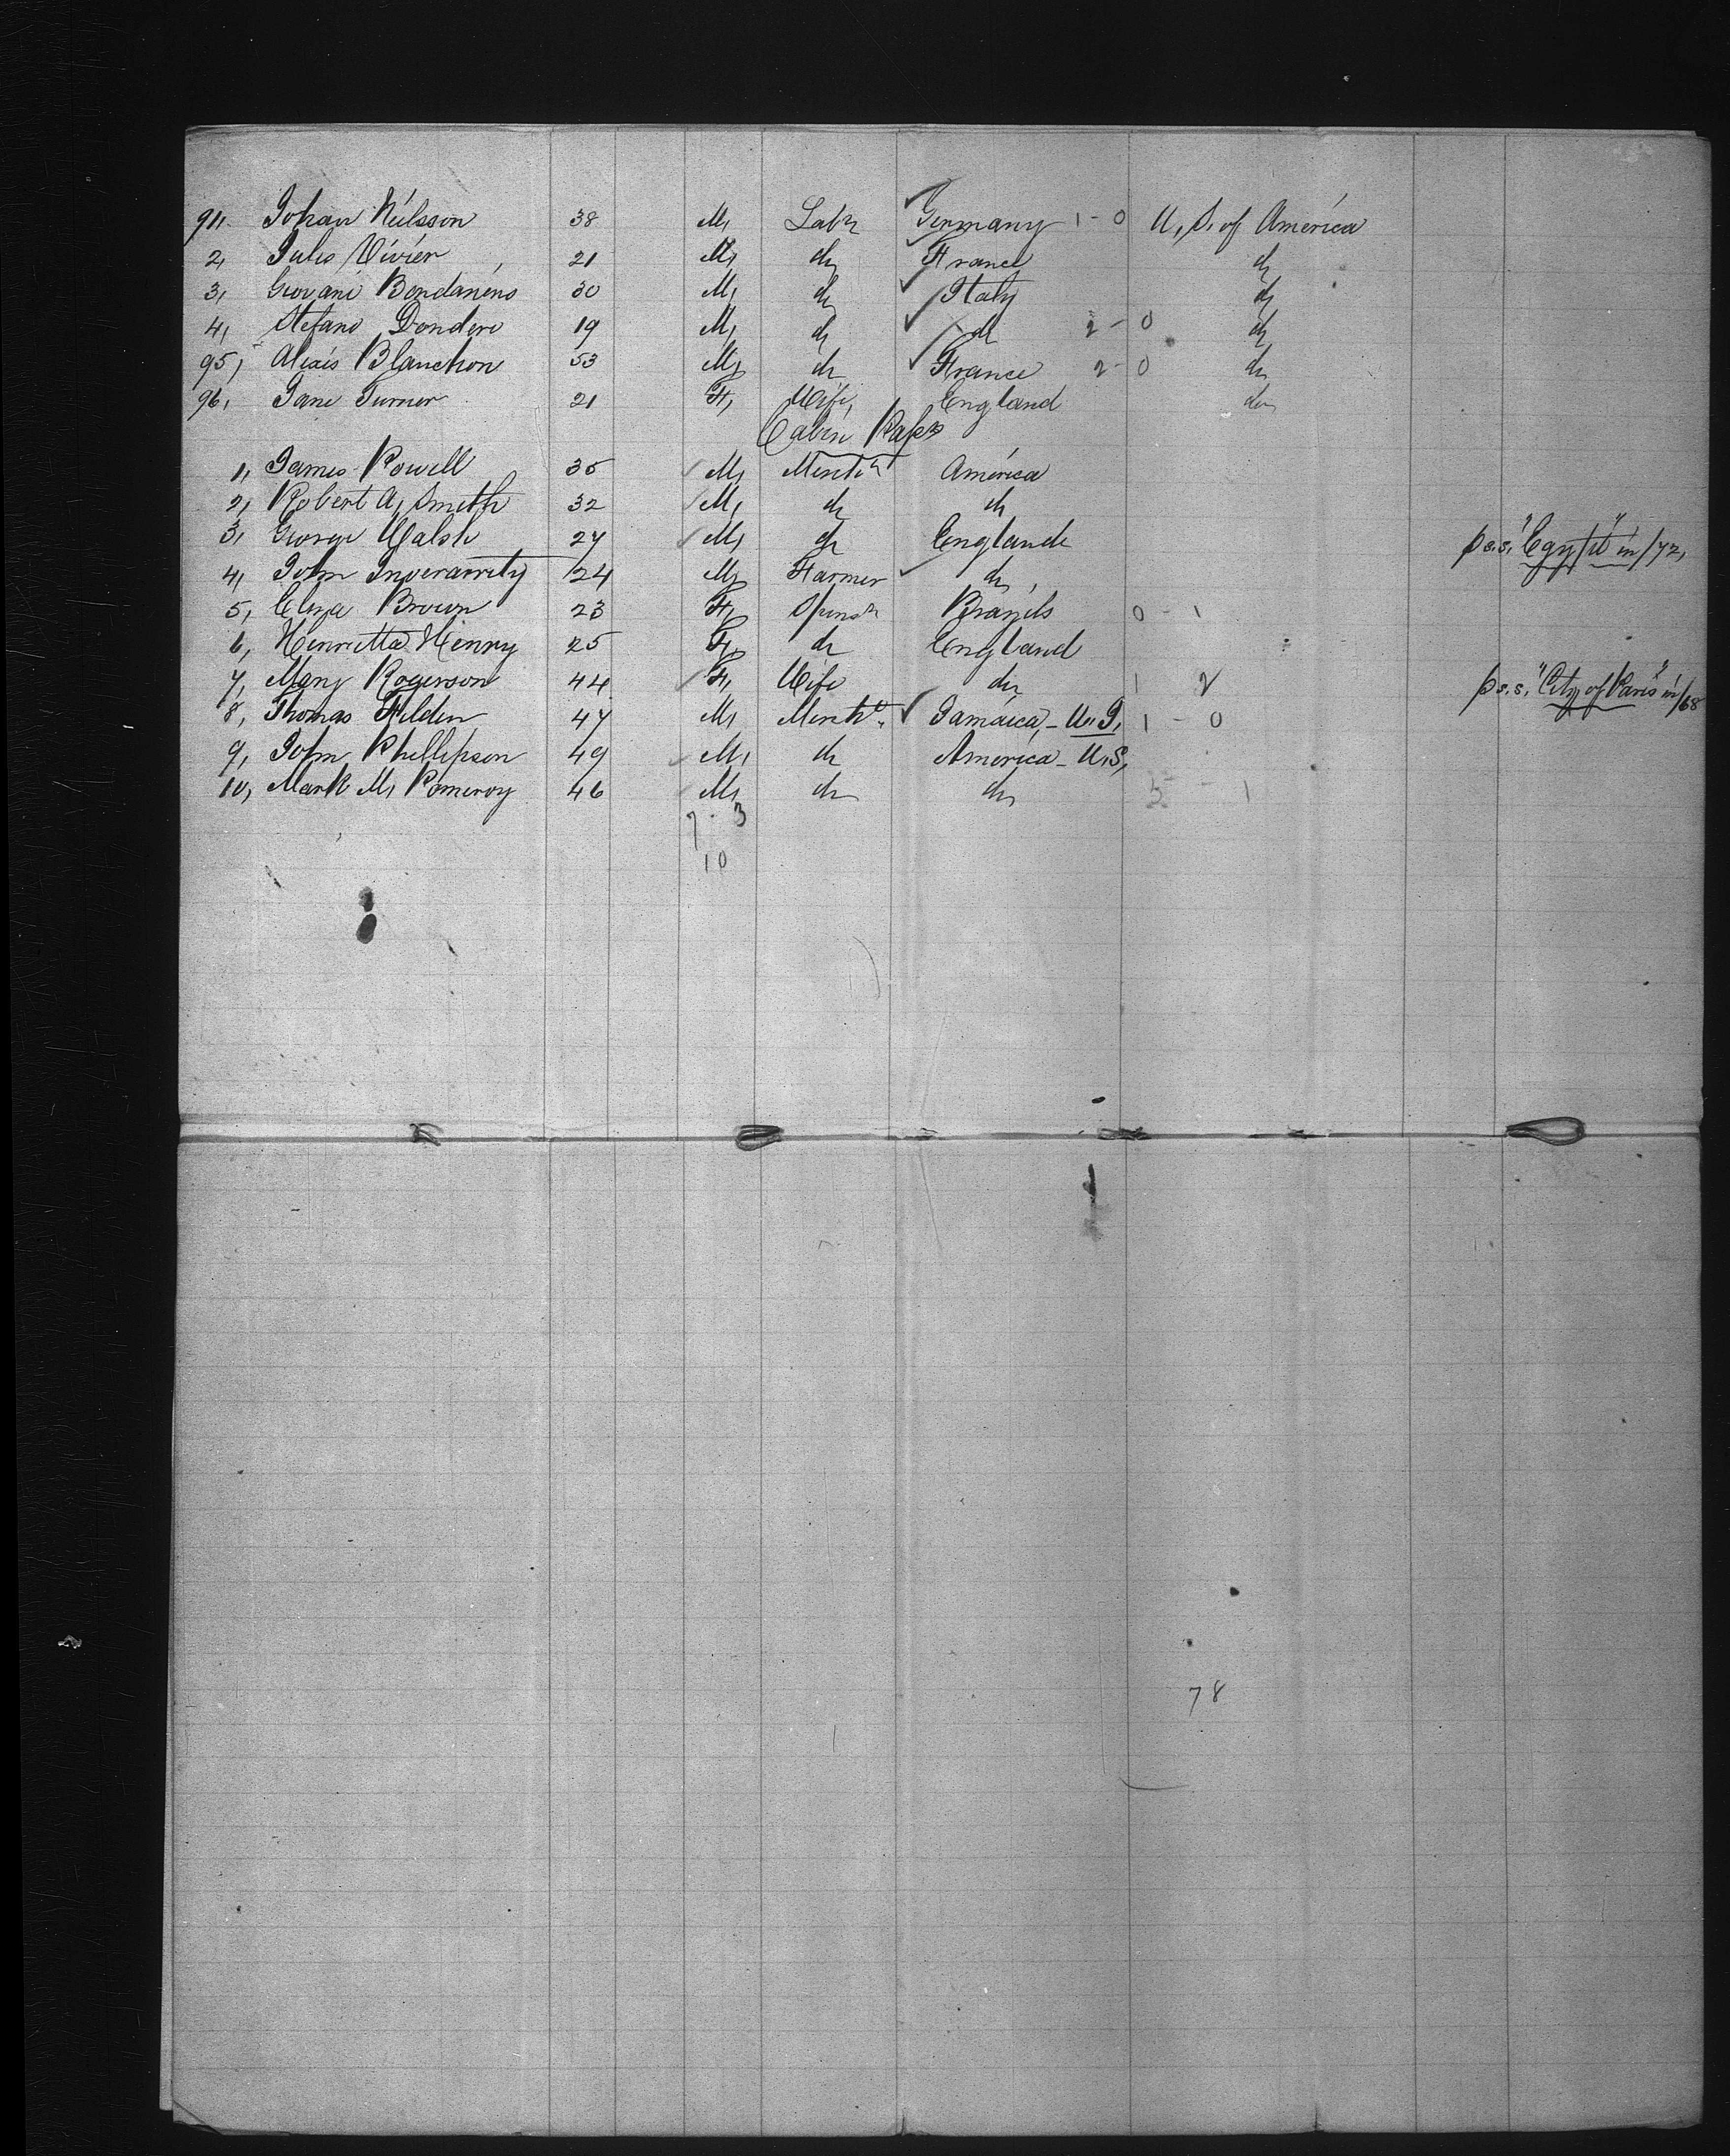 91. Johan Neilsson 38 M, Labr Germany 1-0 U, S. of America
2, Jules Vivier 21 M, do France do
3, Giovani 30 M, do Italy do
4, Stefano Dondero 19 M, do do 2-0 do
95, Alexis Blanchon 53 M, do France 2-0 do
96, Jane Turner 21 F, Wife, England do
Cabin
1, James Powell 35 M, America
2, Robert A, Smith 32 M, do do
3, George Walsh 27 M, do England p s.s. "Egypt" in/72,
4, John Inverarrity 24 M, Farmer do,
5, Eliza Brown 23 F, Spinsr Brazils 0-1
6, Henrietta Henry 25 F, do England
7, Mary Rogerson 44 F, Wife do, 1 2 p s.s. "City of Paris" in/68
8, Thomas Filden 47 M, Jamaica, - 1-0
9, John Phillipson 49 M, do America - U.S,
10, Mark M, Pomeroy 46 M, do do, 5-1
7-3
10
78